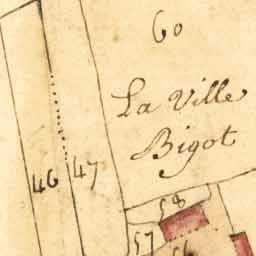 60
La Ville
Bigot
46
47
58
57
56